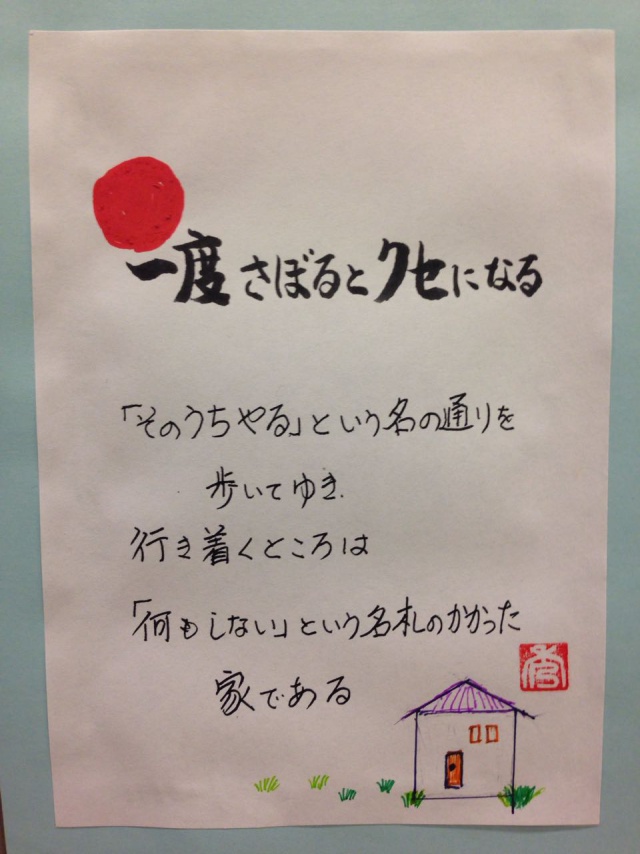 一度さぼるとクセになる
「そのうちやる」という名の通りを
歩いてゆき.
行き着くところは
「何もしない」という名札のかかった
家である